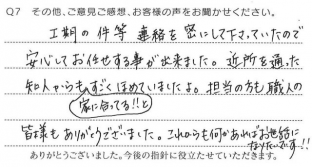 Q7 その他、ご意見ご感想、お客様の声をお聞かせください。
工期の件等 連絡を密にして下さっていたので
安心してお任せする事が出来ました。近所を通った
知人からもすごくほめていましたよ。担当の方も職人の
家に合ってる!!と
皆様もありがとうございました。これからも何かあればお世話に
なりたいです!!
ありがとうございました。今後の指針に役立たせていただきます。